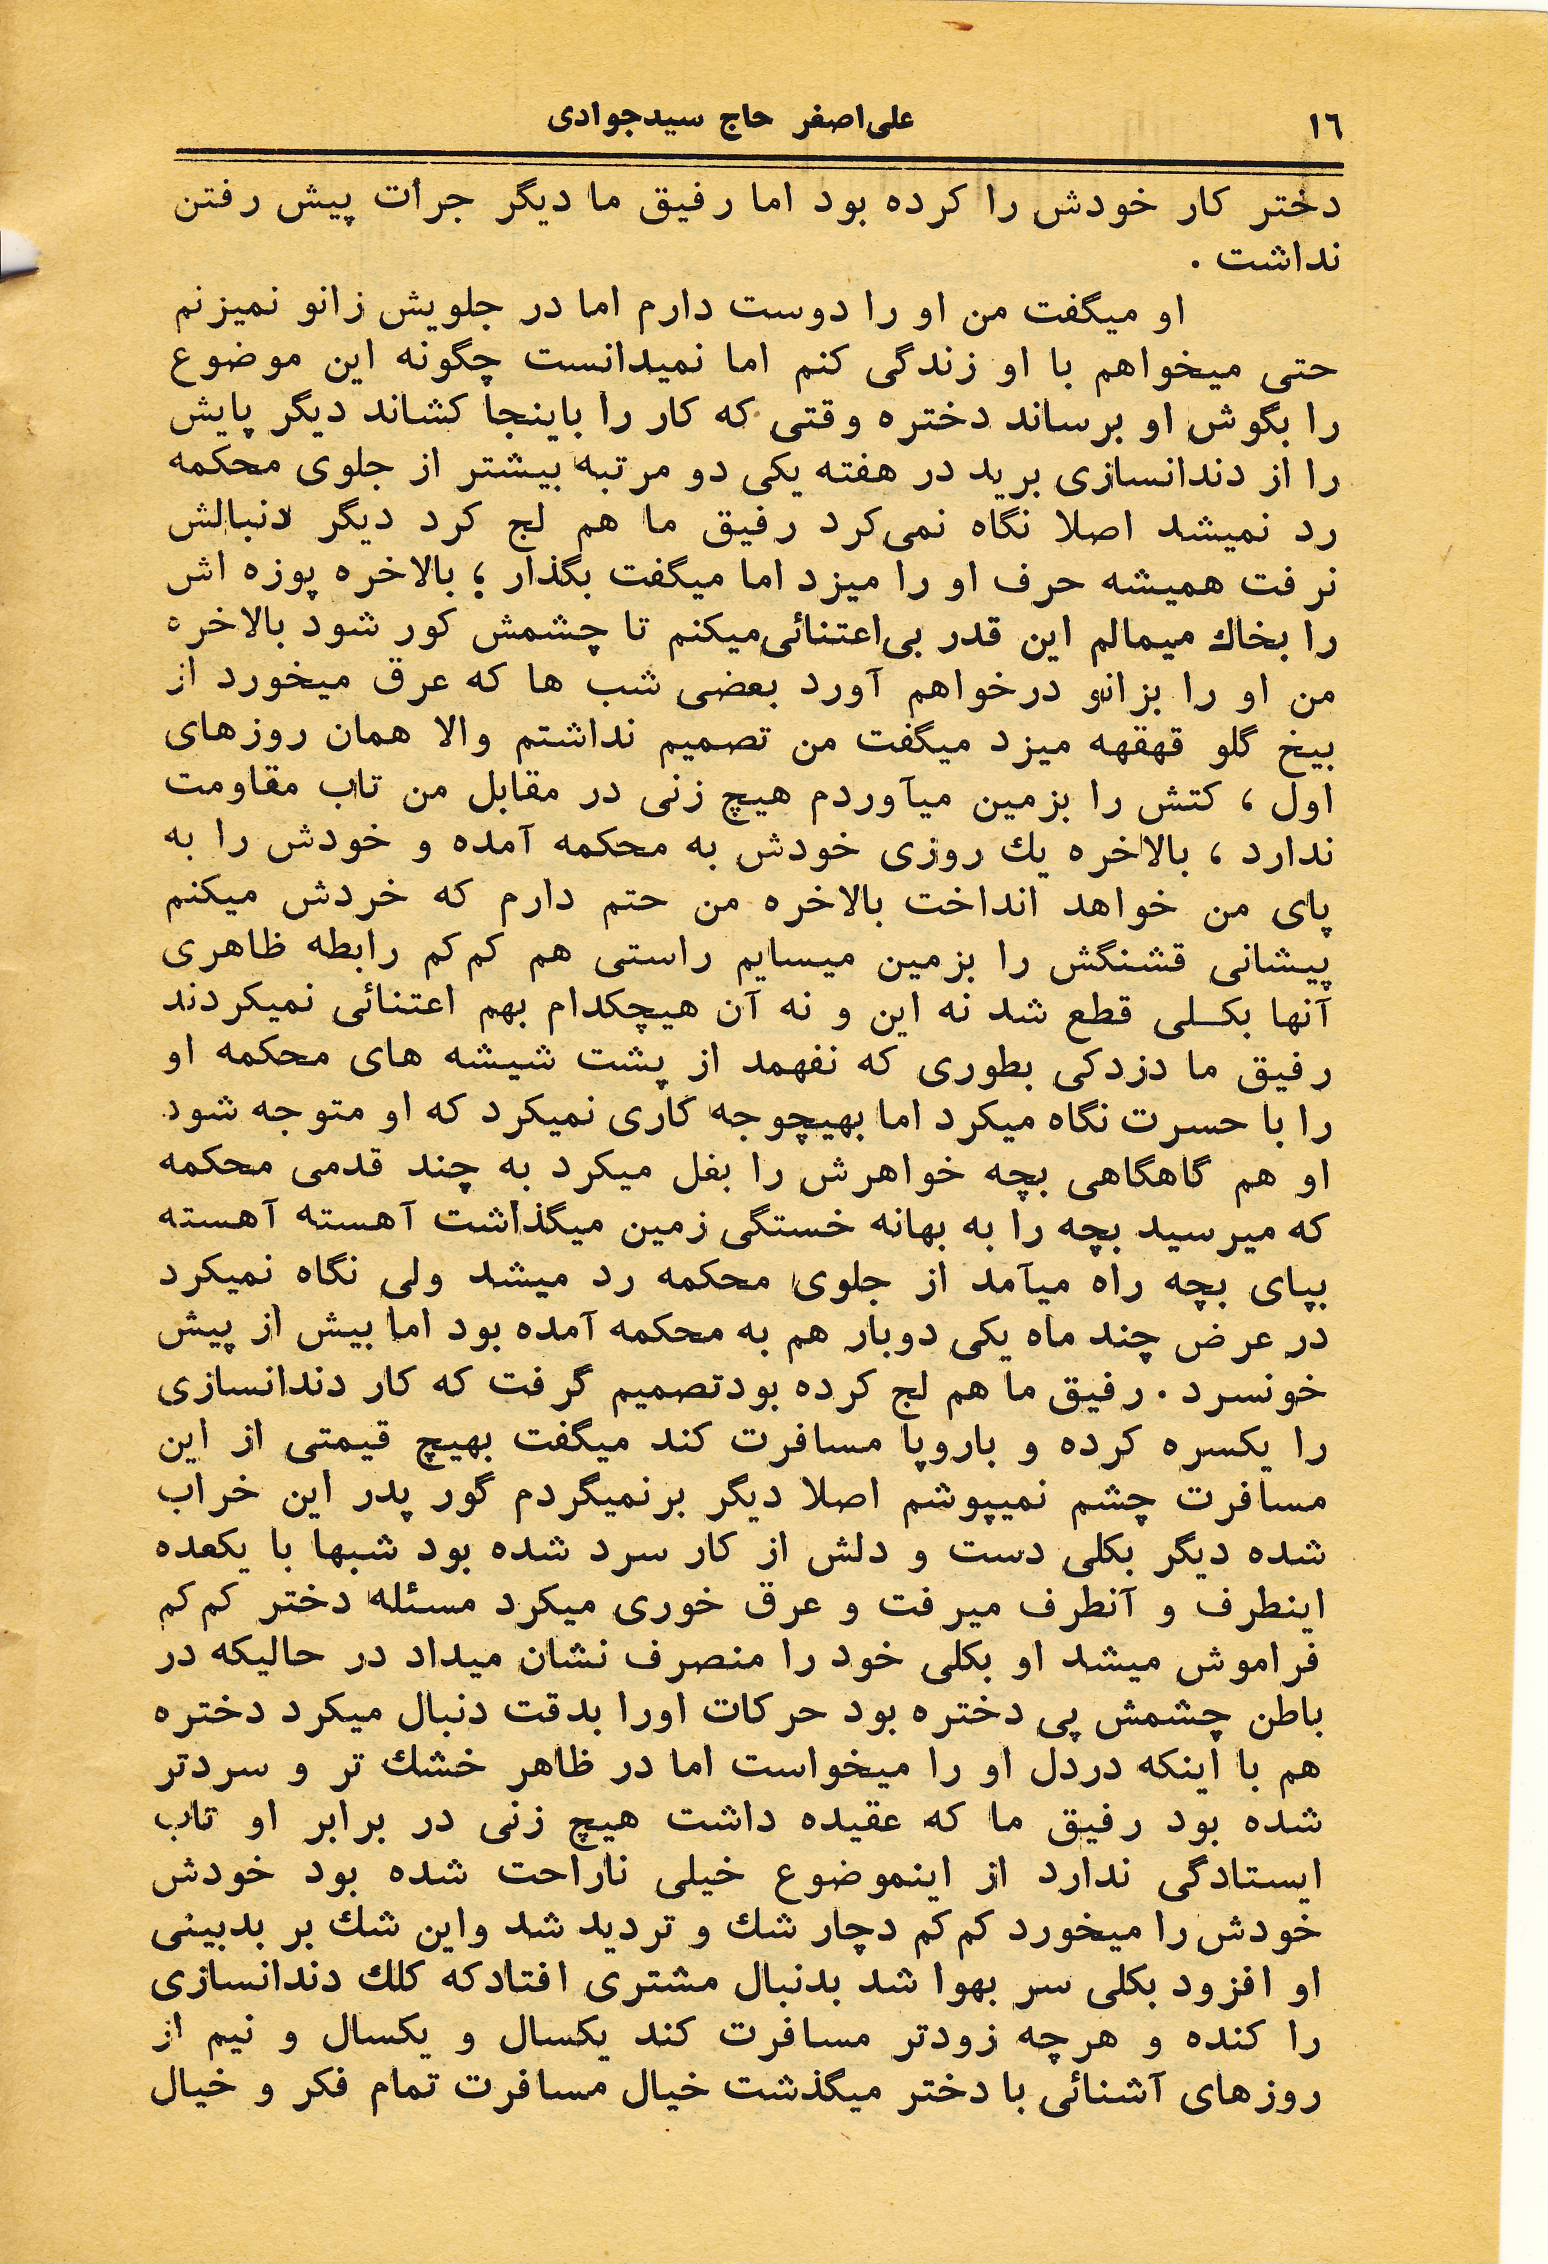 ۱٦
علی‌اصغر حاج سیدجوادی
دختر کار خودش را کرده بود اما رفیق ما دیگر جرأت پیش رفتن
نداشت .
او میگفت من او را دوست دارم اما در جلویش زانو نمیزنم
حتی میخواهم با او زندگی کنم اما نمیدانست چگونه این موضوع
را بگوش او برساند دختره وقتی که کار را باینجا کشاند دیگر پایش
را از دندانسازی برید در هفته یکی دو مرتبه بیشتر از جلوی محکمه
رد نمیشد اصلا نگاه نمی‌کرد رفیق ما هم لج کرد دیگر دنبالش
نرفت همیشه حرف او را میزد اما میگفت بگذار ؛ بالاخره پوزه اش
را بخاك میمالم این قدر بی‌اعتنائی‌میکنم تا چشمش کور شود بالاخره
من او را بزانو درخواهم آورد بعضی شب ها که عرق میخورد از
بیخ گلو قهقهه میزد میگفت من تصمیم نداشتم والا همان روزهای
اول ، کتش را بزمین میآوردم هیچ زنی در مقابل من تاب مقاومت
ندارد ، بالاخره یك روزی خودش به محکمه آمده و خودش را به
پای من خواهد انداخت بالاخره من حتم دارم که خردش میکنم
پیشانی قشنگش را بزمین میسایم راستی هم کم‌کم رابطه ظاهری
آنها بکـلی قطع شد نه این و نه آن هیچکدام بهم اعتنائی نمیکردند
رفیق ما دزدکی بطوری که نفهمد از پشت شیشه های محکمه او
را با حسرت نگاه میکرد اما بهیچوجه کاری نمیکرد که او متوجه شود
او هم گاهگاهی بچه خواهرش را بغل میکرد به چند قدمی محکمه
که میرسید بچه را به بهانه خستگی زمین میگذاشت آهسته آهسته
بپای بچه راه میآمد از جلوی محکمه رد میشد ولی نگاه نمیکرد
در عرض چند ماه یکی دوبار هم به محکمه آمده بود اما بیش از پیش
خونسرد . رفیق ما هم لج کرده بودتصمیم گرفت که کار دندانسازی
را یکسره کرده و باروپا مسافرت کند میگفت بهیچ قیمتی از این
مسافرت چشم نمیپوشم اصلا دیگر برنمیگردم گور پدر این خراب
شده دیگر بکلی دست و دلش از کار سرد شده بود شبها با یکعده
اینطرف و آنطرف میرفت و عرق خوری میکرد مسئله دختر کم‌کم
فراموش میشد او بکلی خود را منصرف نشان میداد در حالیکه در
باطن چشمش پی دختره بود حرکات اورا بدقت دنبال میکرد دختره
هم با اینکه دردل او را میخواست اما در ظاهر خشك تر و سردتر
شده بود رفیق ما که عقیده داشت هیچ زنی در برابر او تاب
ایستادگی ندارد از اینموضوع خیلی ناراحت شده بود خودش
خودش را میخورد کم‌کم دچار شك و تردید شد واین شك بر بدبینی
او افزود بکلی سر بهوا شد بدنبال مشتری افتادکه کلك دندانسازی
را کنده و هرچه زودتر مسافرت کند یکسال و یکسال و نیم از
روزهای آشنائی با دختر میگذشت خیال مسافرت تمام فکر و خیال